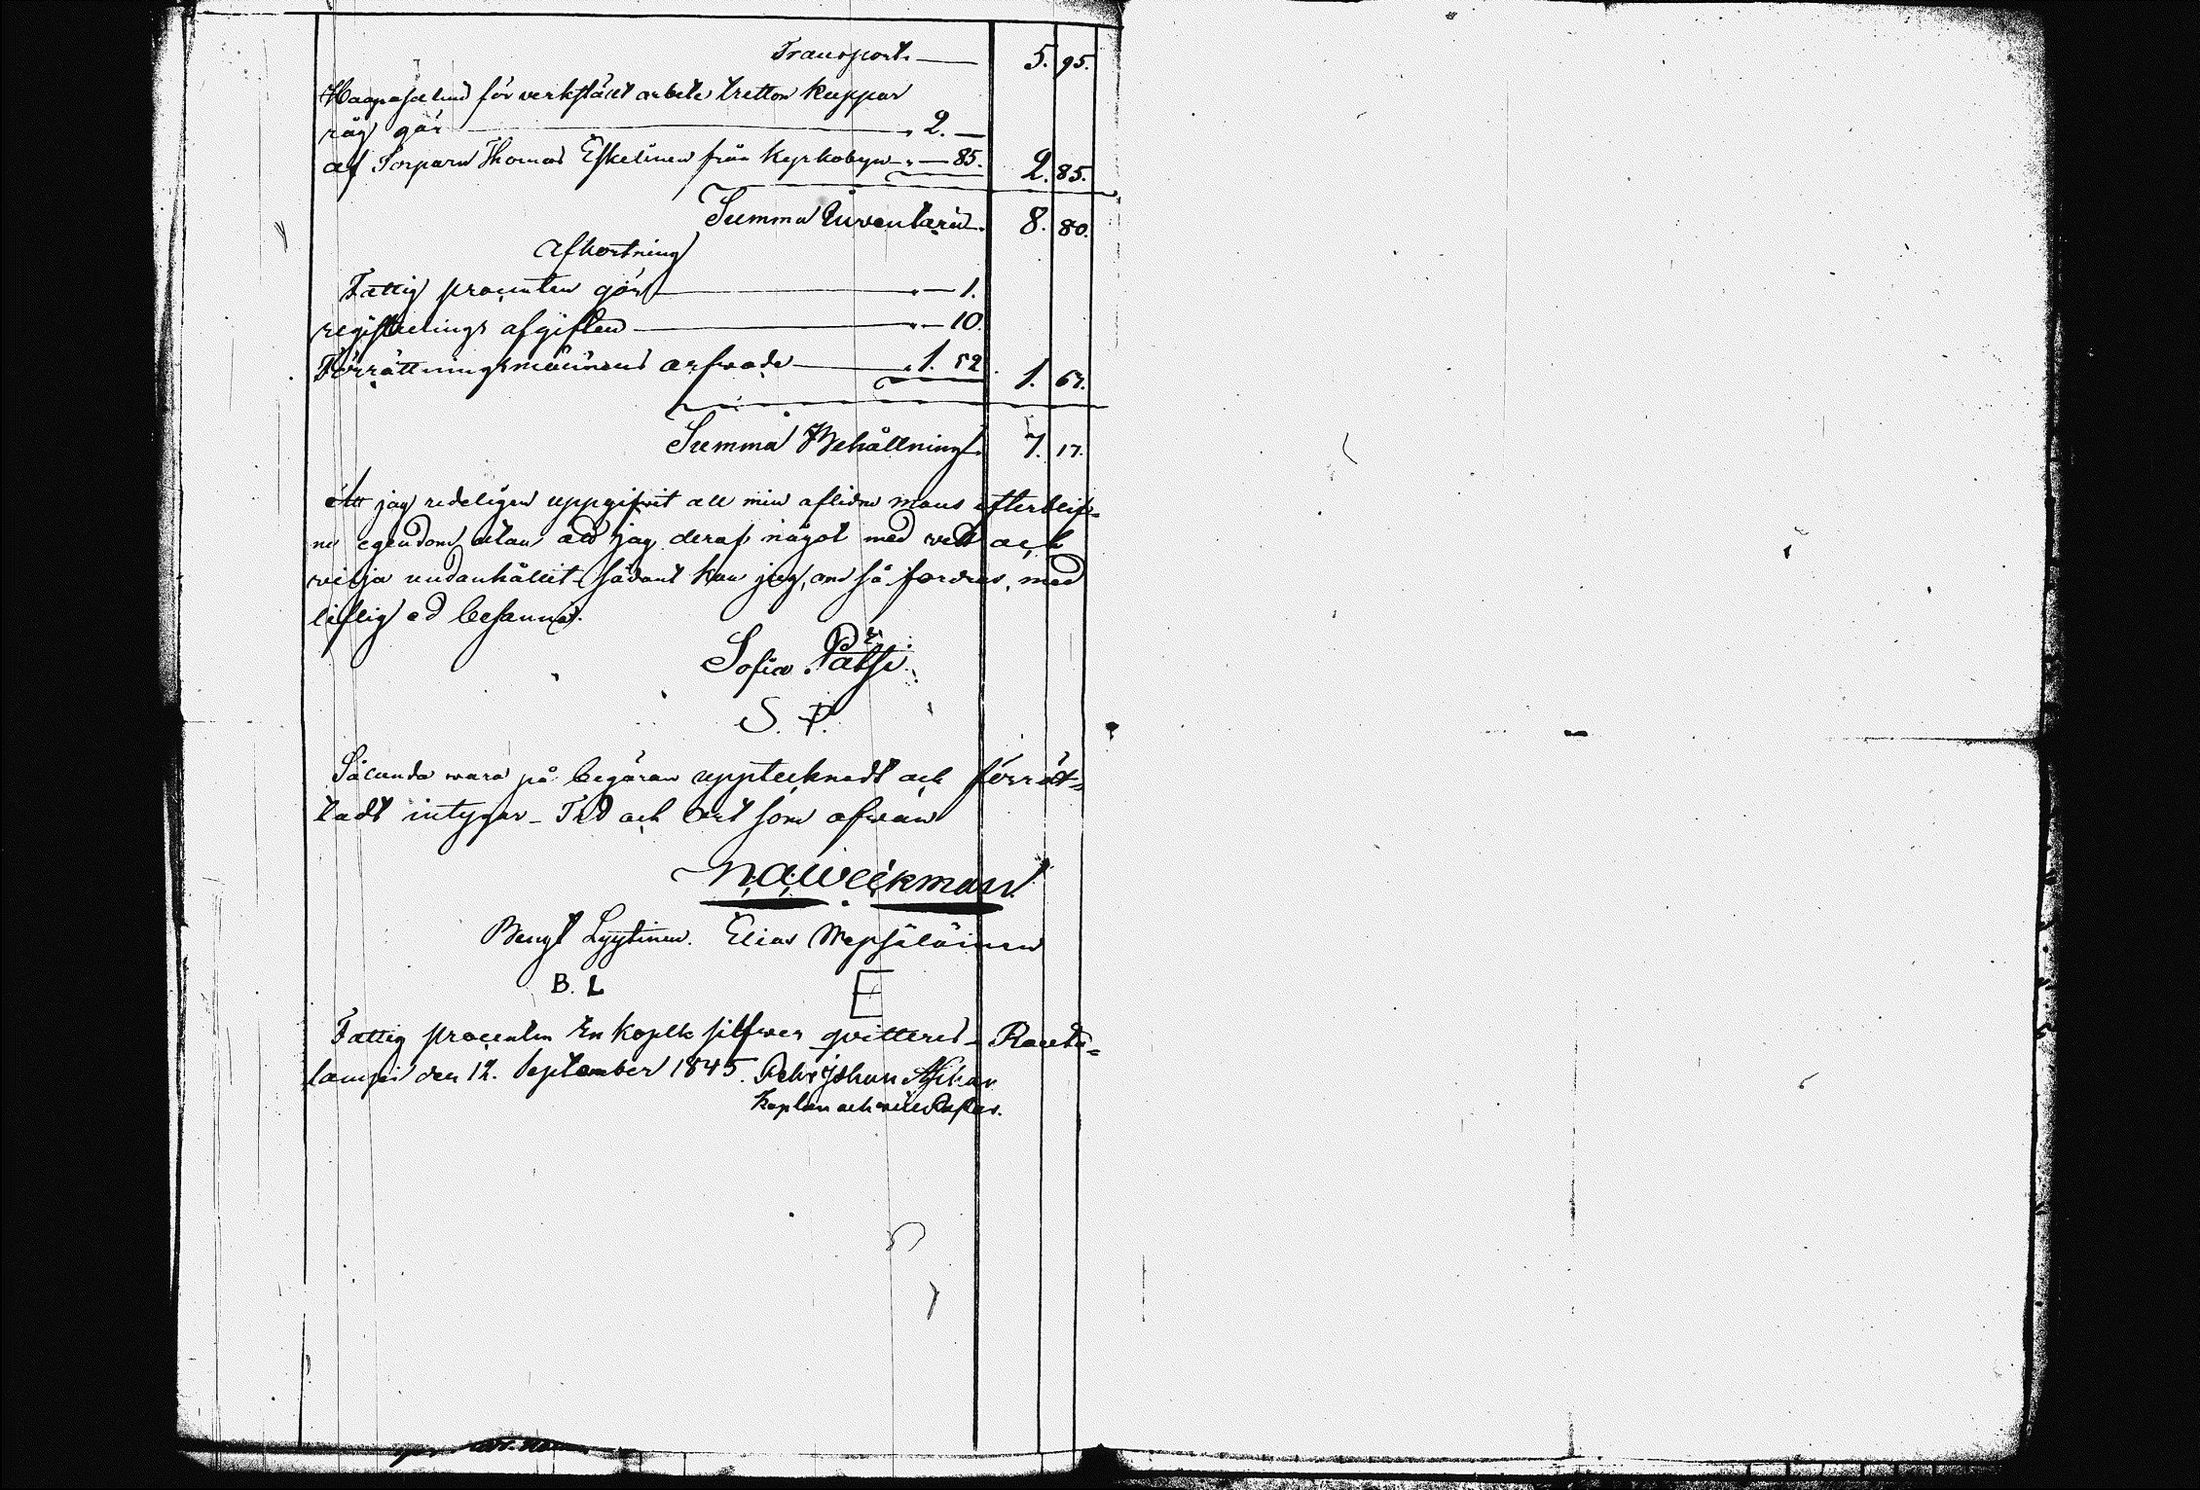 Transport — 5. 95.
för verkstäldt arbete tretton kappar
råg gör — 2. —
af Torparn Thomas Eskelinen från Kyrkobyn — 85. 2. 85.
Summa Inventarii. 8. 80.
Afkortning
Fattig procenten gör — 1.
registrerings afgiften — 10.
Förrättningsmännens arfwode — 1. 52. 1. 63.
Summa Behållning 7. 17.
Att jag redeligen uppgifvit all min aflidne mans efterblif=
ne egendom utan att jag deraf något med vett och
vilja undanhållit sådant kan jag, om så fordras, med
liflig ed besanna.
Sofia Pätsi.
S. P.
Sålunda wara på begäran upptecknadt och förrät=
tadt intygar – Tid och Ort som ofwan
N. A. Weckman.
Bengt Lyytinen. Elias Wepsäläinen
B. L E
Fattig procenten En kopek silfwer qvitteras – Rauta=
lampi den 12. September 1845. Johan
Kaplan och